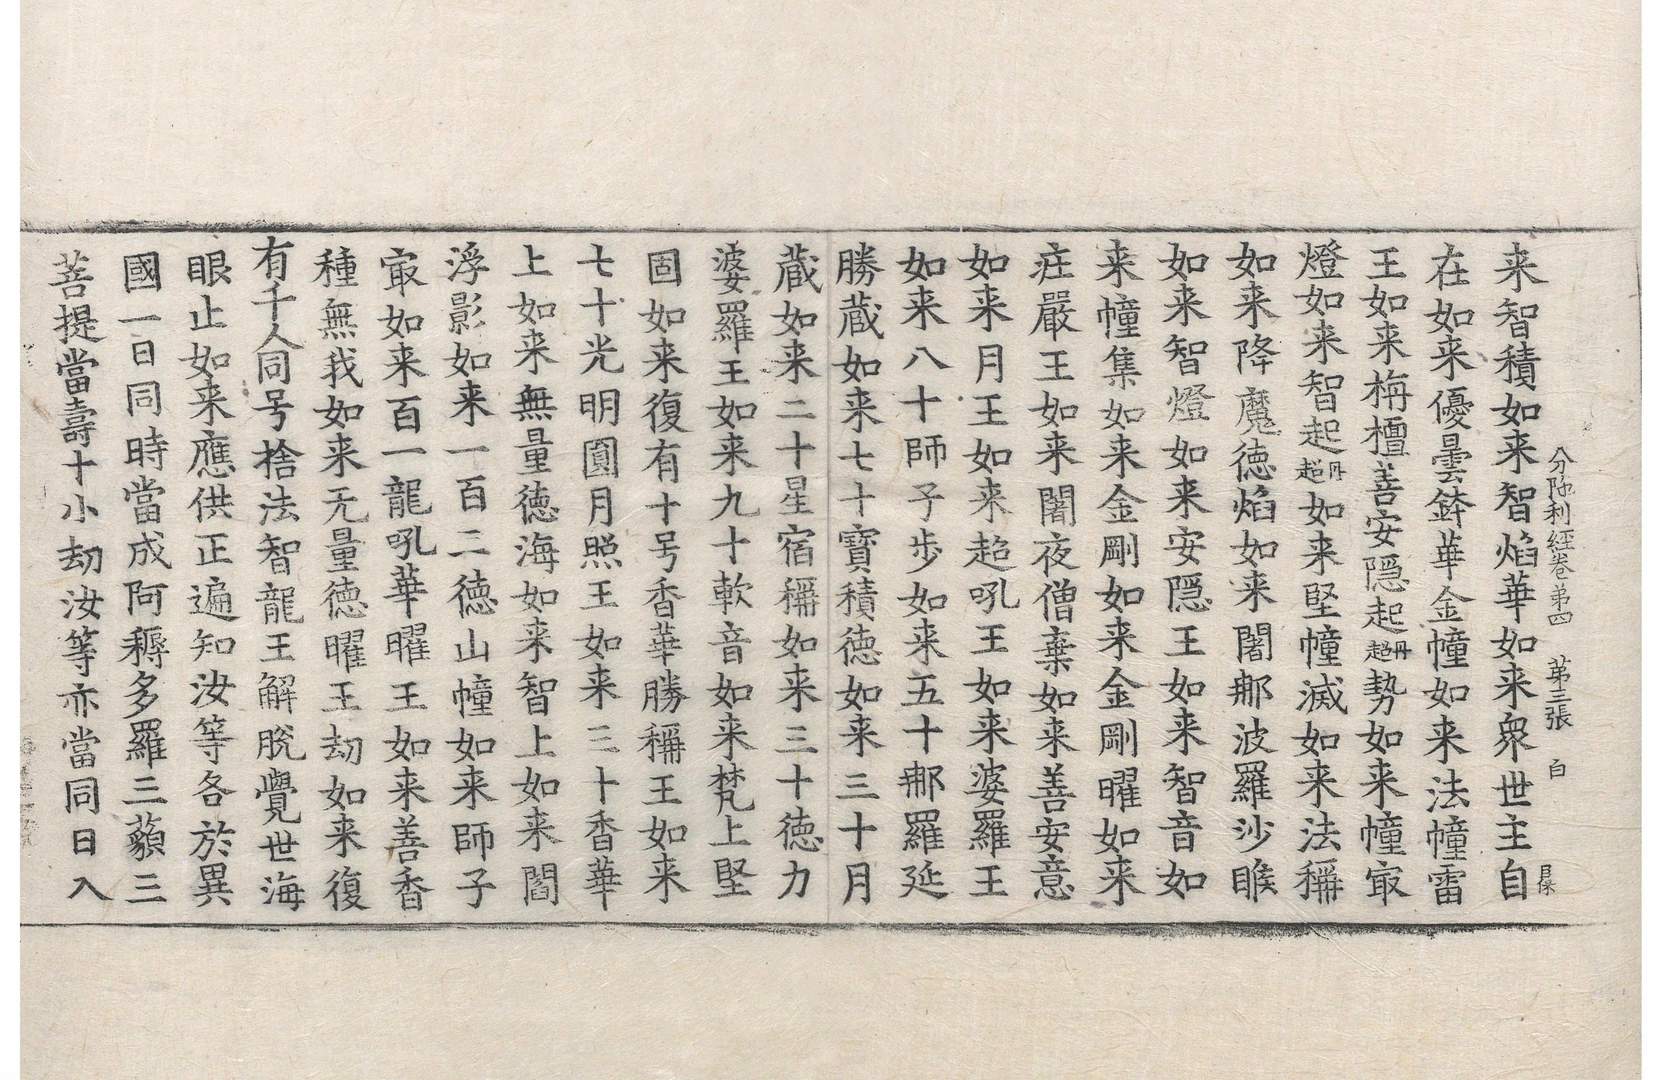 分陁利經卷第四 第三張 白
来智積如来智焰華如来衆世主自
在如来優曇鉢華金幢如来法幢雷
王如来栴檀善安隠起丹超勢如来幢㝡
燈如来智起丹超如来堅幢滅如来法稱
如来降魔徳焰如来闍郍波羅沙睺
如来智燈如来安隠王如来智音如
来幢集如来金剛如来金剛曜如来
疘嚴王如来闍夜僧棄如来善安意
如来月王如来超吼王如来婆羅王
如来八十師子步如来五十郍羅延
勝蔵如来七十寶積徳如来三十月
蔵如来二十星宿稱如来三十徳力
婆羅王如来九十軟音如来梵上堅
固如来復有十号香華勝稱王如来
七十光明圓月照王如来三十香華
上如来無量徳海如来智上如来閻
浮影如来一百二徳山幢如来師子
㝡如来百一龍吼華曜王如来善香
種無我如来无量徳曜王劫如来復
有千人同号捨法智龍王解脫覺世海
眼止如来應供正遍知汝等各於異
國一日同時當成阿耨多羅三藐三
菩提當壽十小劫汝等亦當同日入